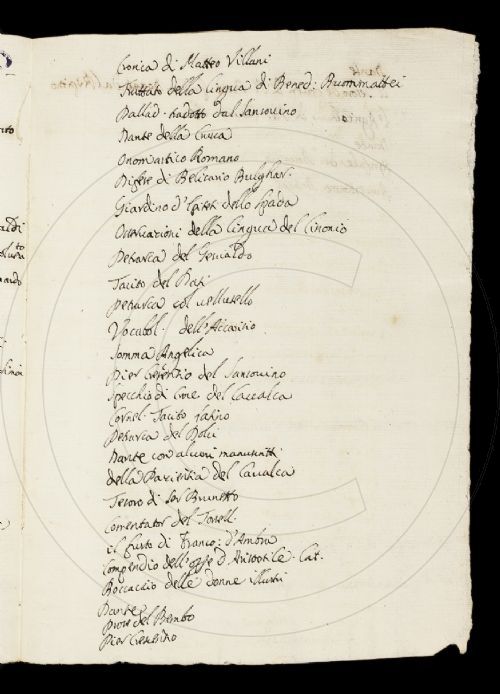 Cronica di Matteo Villani
Trattato della lingua di Bened: Buommattei
Pallad. tradotto dal Sansovino
Dante della Crusca
Onomastico Romano
Difese di Belisario Bulghar.
Giardino d'Epitt. dello Spada
Osservazioni della lingua del Cinonio
Petrarca del Gesualdo
Tacito del Dati
Petrarca col vellutello
Vocabol. dell'Accarisio
Somma Angelica
Pier Crescentio del Sansovino
Specchio di Croce del Cavalca
Cornel. Tacito latino
Petrarca del Dolci
Dante con alcuni manuscritti
della Pazientia del Cavalca
Tesoro di Ser Brunetto
Comentator del
il furto di Franco: d'Ambra
Compendio dell' d'Aristotile Lat.
Boccaccio delle donne illustri
Dante
Prose del Bembo
Pier Crescentino